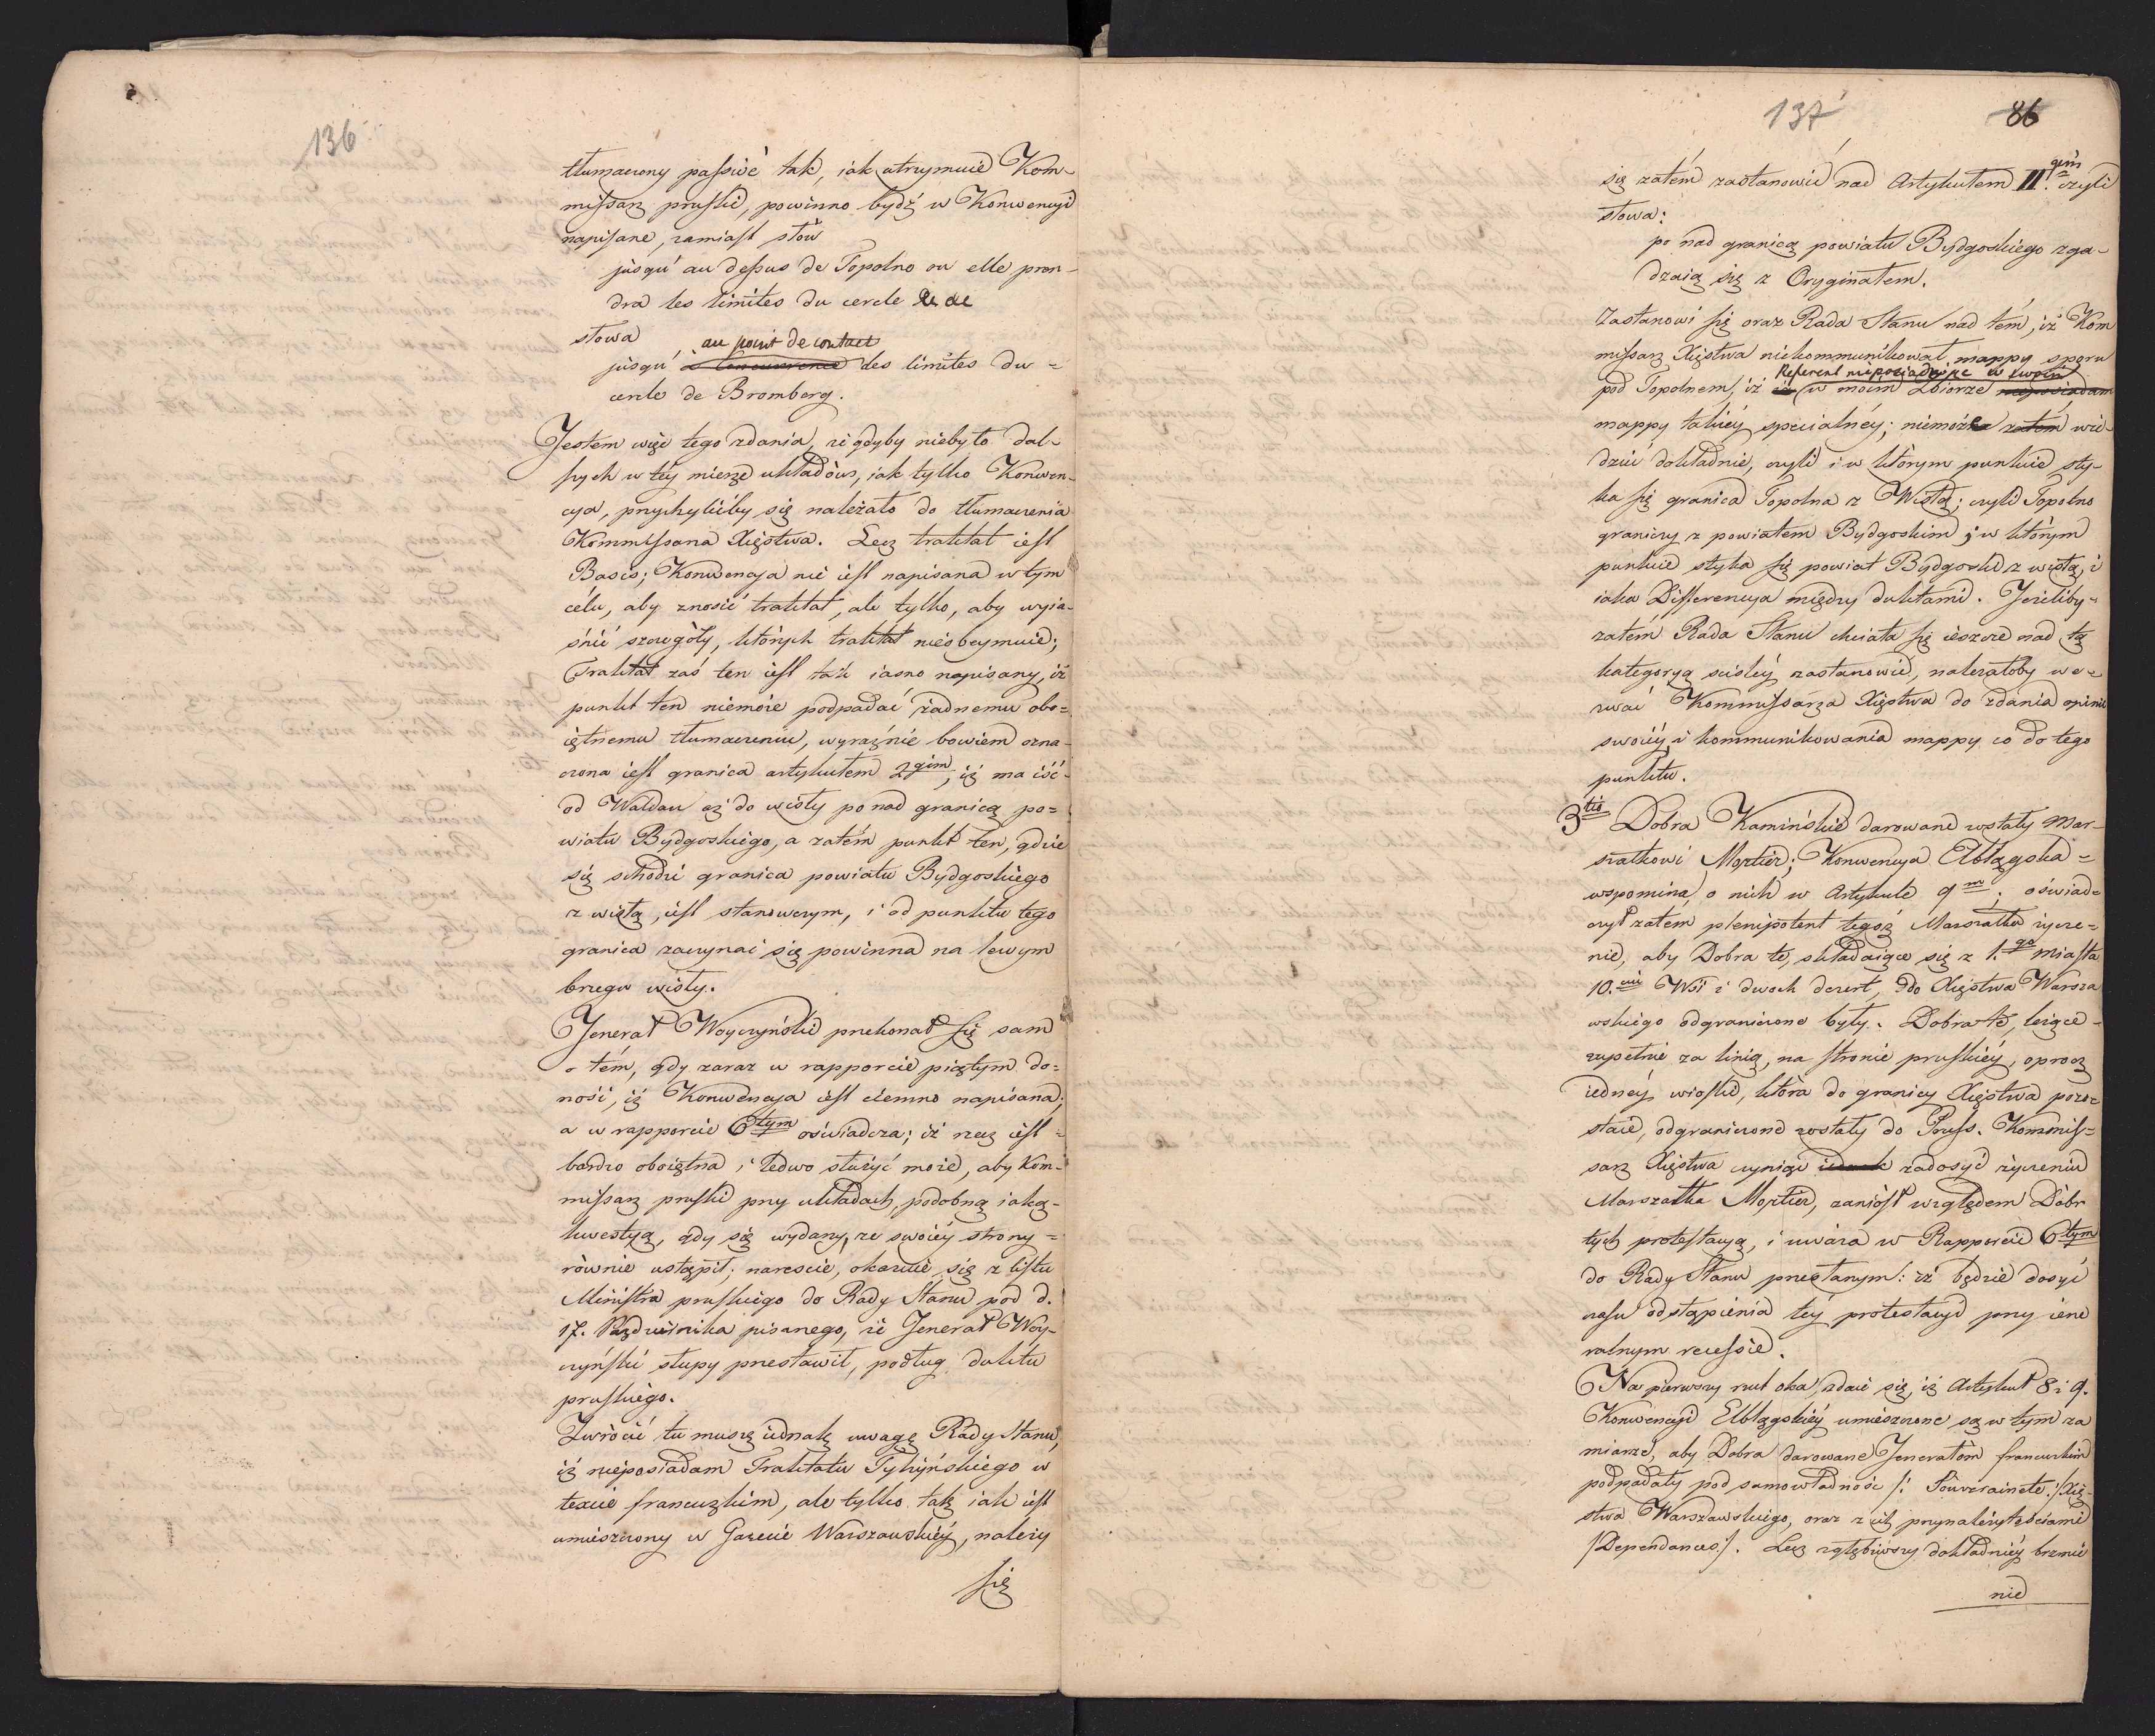 136
tłumaczony passivé tak, iak utrzymuie Kom-
missarz pruski, powinno bydź w Konwencyi
napisane, zamiast słów
jusqu' au dessus de Topolno ou elle pren-
dra les limites du cercle &c &c
słowa au point de contact
jusqu' à la concurrence des limites du =
cercle de Bromberg.
Jestem więc tego zdania, że gdyby niebyło dal-
szych w téy mierze układów, iak tylko Konwen-
cya, przychylićby się należało do tłumaczenia
Kommissarza Xięstwa. Lecz traktat iest
Basis; Konwencya nie iest napisana w tym
célu, aby znosić traktat, ale tylko, aby wyia-
śnić szczegóły, których traktat nieobeymuie;
Traktat zaś ten iest tak iasno napisany, iż
punkt ten niemoże podpadać żadnemu obo=
iętnemu tłumaczeniu, wyraźnie bowiem ozna-
czona iest granica artykułem 2gim, iż ma iść
od Waldau aż do wisły po nad granicą po=
wiatu Bydgoskiego, a zatém punkt ten, gdzie
się schodzi granica powiatu Bydgoskiego
z wisłą, iest stanowczym, i od punktu tego
granica zaczynać się powinna na lewym
brzegu wisły.
Jenerał Woyczyński przekonał się sam
o tém, gdy zaraz w rapporcie piątym do=
nosi, iż Konwencya iest ciemno napisana;
a w rapporcie 6tym oświadcza; iż rzecz iest =
bardzo oboiętna i ledwo służyć może, aby Kom-
missarz pruski przy układach, podobną iaką-
kwestyą, gdy się wydarzy, ze swoiéy strony =
równie ustąpił; nareszcie, okazuie się z listu
Ministra pruskiego do Rady Stanu pod d.
17. Października pisanego, że Jenerał Woy-
czyński słupy przestawił, podług duktu
pruskiego.
Zwrócić tu muszę iednak uwagę Rady Stanu,
iż nieposiadam Traktatu Tylżyńskiego w
texcie francuzkim, ale tylko tak iak iest
umieszczony w Gazecie Warszawskiéy, należy
się
137 86
się zatém zastanowić nad Artykułem II.gim czyli
słowa:
po nad granicą powiatu Bydgoskiego zga-
dzaią się z Oryginałem.
Zastanowi się oraz Rada Stanu nad tém, iż Kom
missarz Xięstwa niekommunikował mappy sporu
Referent nieposiadaiąc w swoim
pod Topolnem, iż w moim Zbiorze nieposiadam
mappy takiéy specialnéy; niemoże zatém wie-
dzieć dokładnie, czyli i w którym punkcie sty-
ka się granica Topolna z Wisłą; czyli Topolno
graniczy z powiatem Bydgoskim i w którym
punkcie styka się powiat Bydgoski z wisłą, i
iaka Differencya między duktami. Jeżeliby=
zatém Rada Stanu chciała się ieszcze nad tą
kategoryą ściśléy zastanowić, należałoby we-
zwać Kommissarza Xięstwa do zdania opinii
swoiéy i kommunikowania mappy co do tego
punktu.
3tio Dobra Kamińskie darowane zostały Mar-
szałkowi Mortier; Konwencya Elblągska =
wspomina o nich w Artykule 9m; oświad=
czył zatém plenipotent tegoż Marszałka życze=
nie, aby Dobra te, składaiące się z 1.go miasta
10.ciu Wsi i dwoch dezert, do Xięstwa Warsza
wskiego odgraniczone były. Dobra te, leżące -
zupełnie za linią, na stronie pruskiéy, oprocz
iednéy wioski, która do granicy Xięstwa pozo=
staie, odgraniczone zostały do Pruss. Kommis=
sarz Xięstwa czyniąc iednak zadosyć życzeniu
Marszałka Mortier, zaniósł względem Dobr
tych protestacyą, i uważa w Rapporcie 6tym
do Rady Stanu przesłanym: iż będzie dosyć
czasu odstąpienia téy protestacyi przy iene
ralnym recessie.
Na pierwszy rzut oka, zdaie się, iż Artykuł 8 i 9.
Konwencyi Elblągskiéy umieszczone są w tym za
miarze, aby Dobra darowane Jenerałom francuzkim
podpadały pod samowładność /: Souverainete :/ Xię-
stwa Warszawskiego, oraz z ich przynależytościami
/Dependances/. Lecz zgłębiwszy dokładniéy brzmie
nie